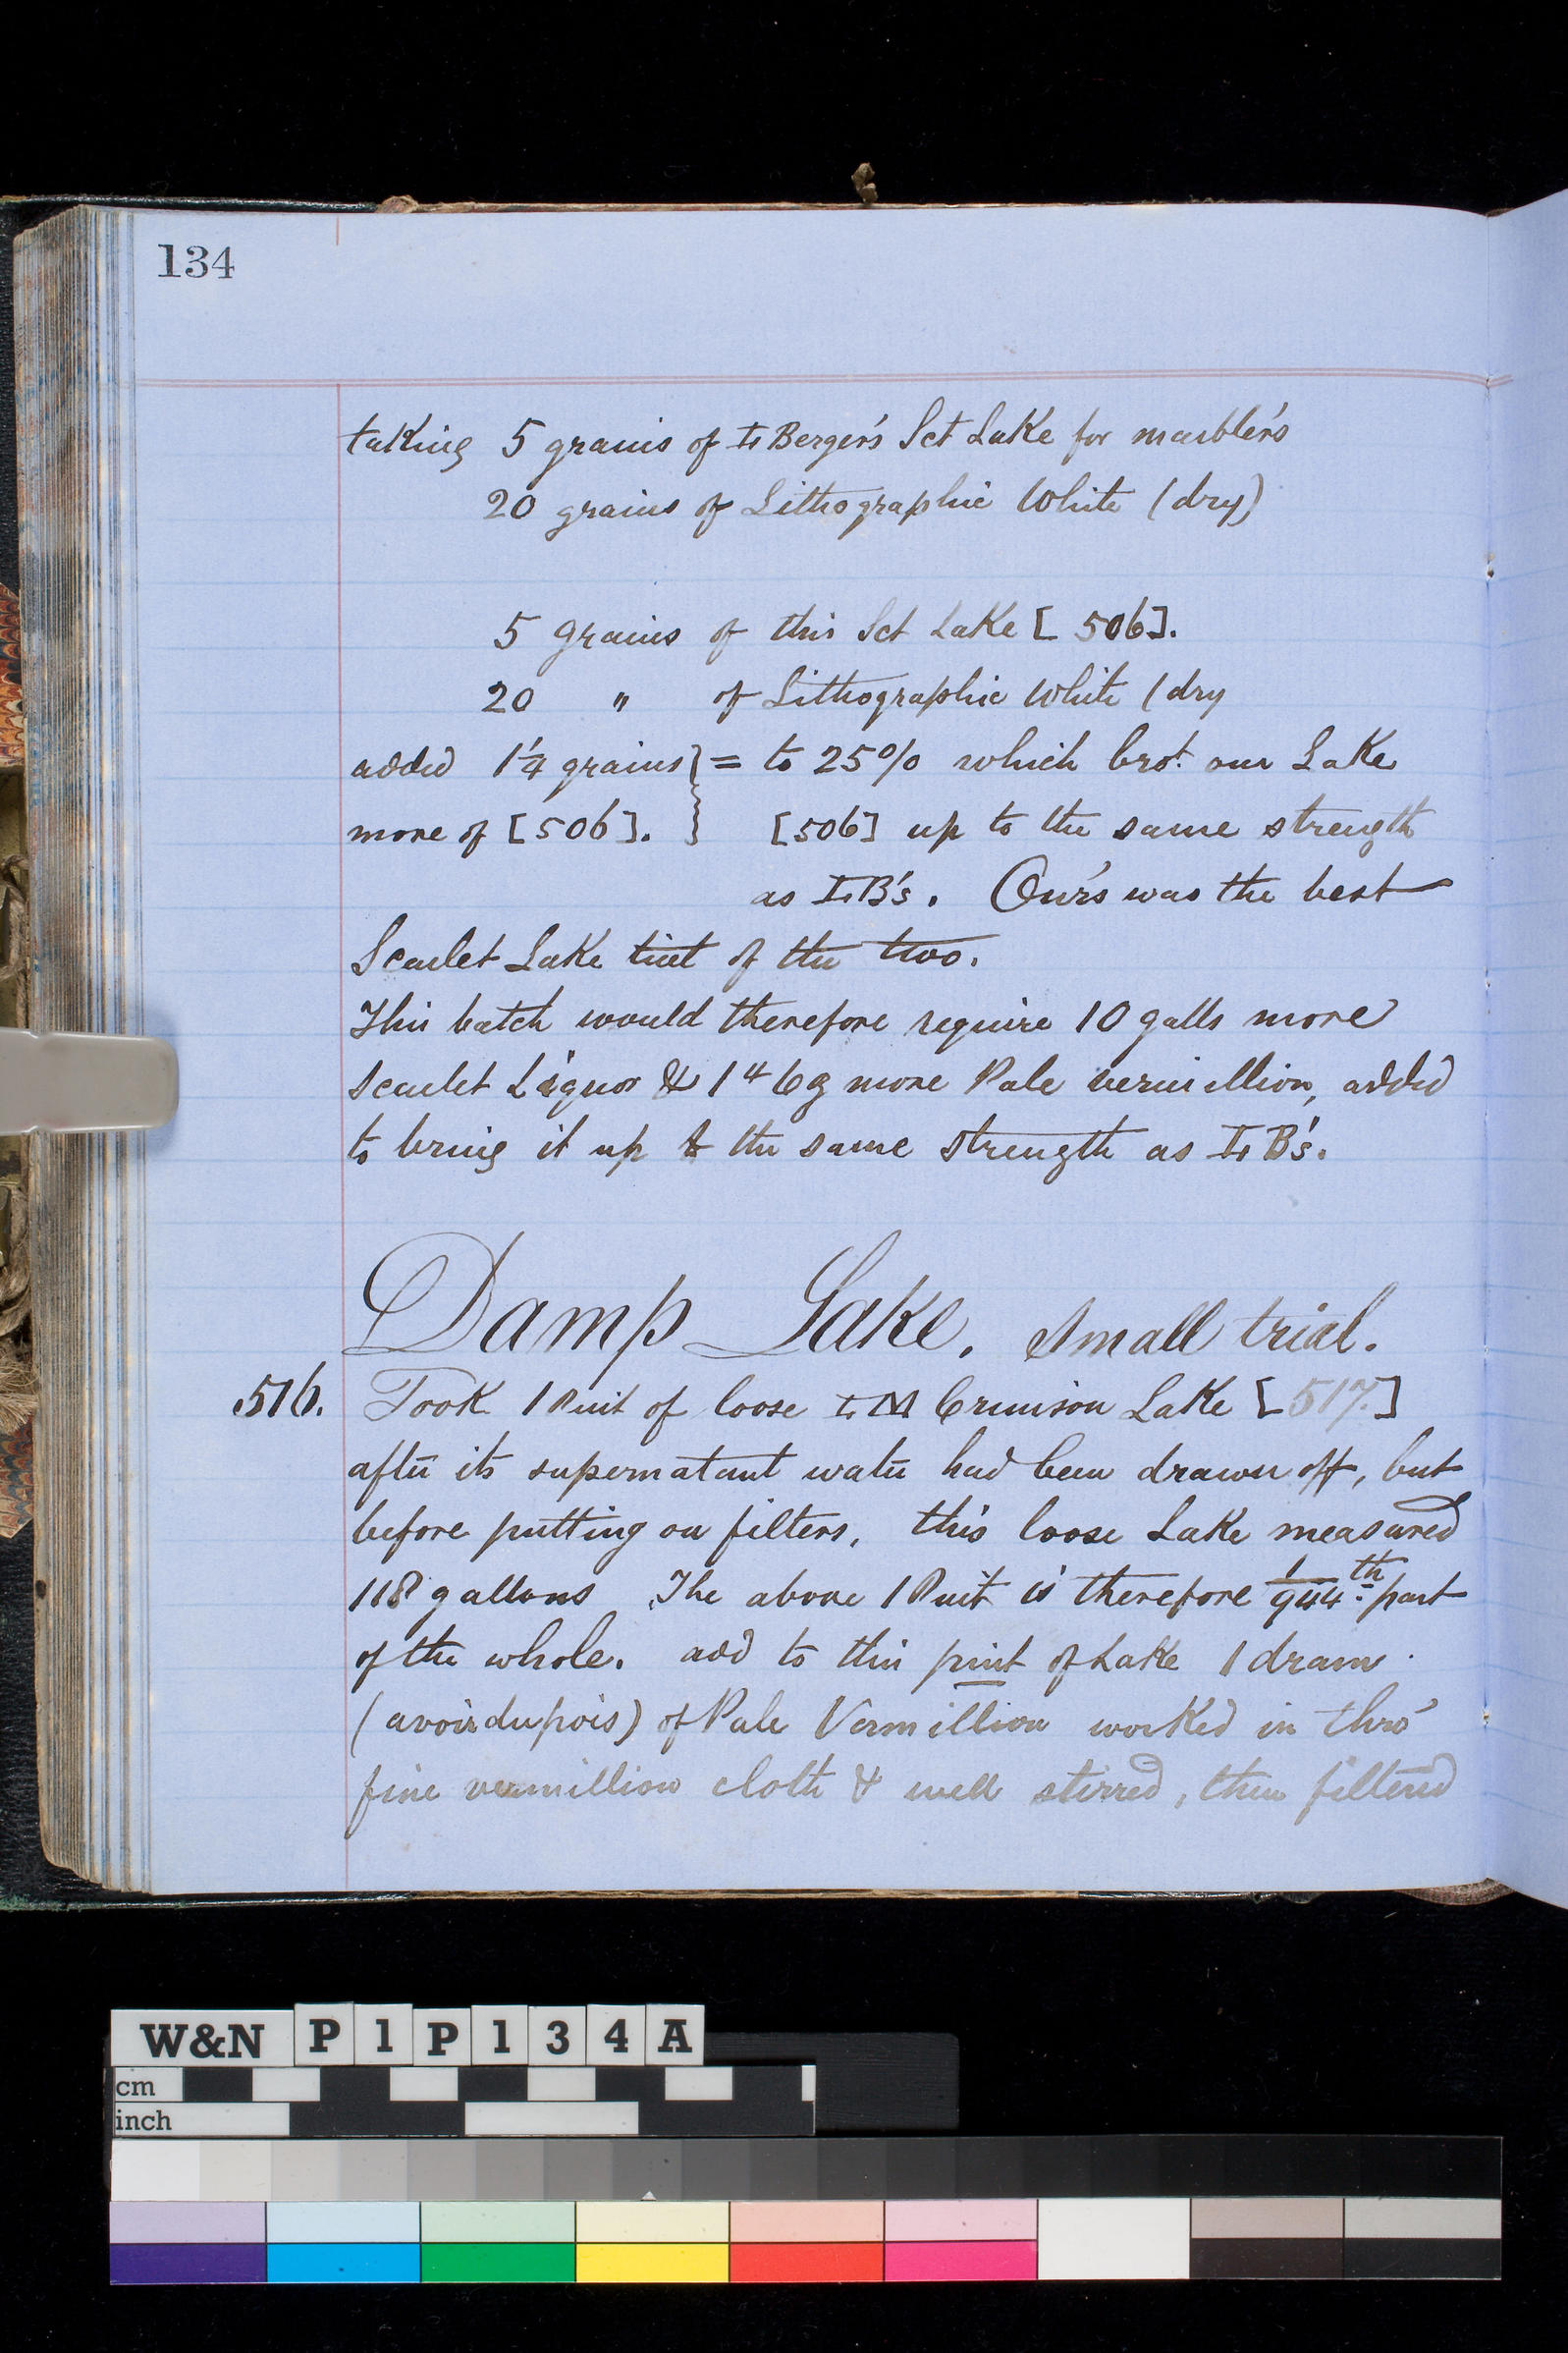 134
taking 5 grains of Berger's Sct Lake for marblers
20 grains of Lithographic White (dry)
5 grains of this Sct Lake [506].
20 " of Lithographic White (dry
added 1¼ grains } = to 25% which brot. our Lake
more of [506]. } [506] up to the same strength
as B's. Our's was the best
Scarlet Lake tint of the two.
This batch would therefore require 10 galls more
Scarlet Liquor & more Pale vermillion, added
to bring it up to the same strength as B's.
Damp Lake. Small trial.
516. Took 1 Pint of loose Crimson Lake [517.]
after its supernatant water had been drawn off, but
before putting on filters, this loose Lake measured
118 gallons The above 1 Pint is therefore 1/944th part
of the whole. add to this pint of Lake 1 dram
(avoirdupois) of Pale Vermillion worked in thro'
fine vermillion cloth & well stirred, then filtered
W&N P1P134A
cm
inch